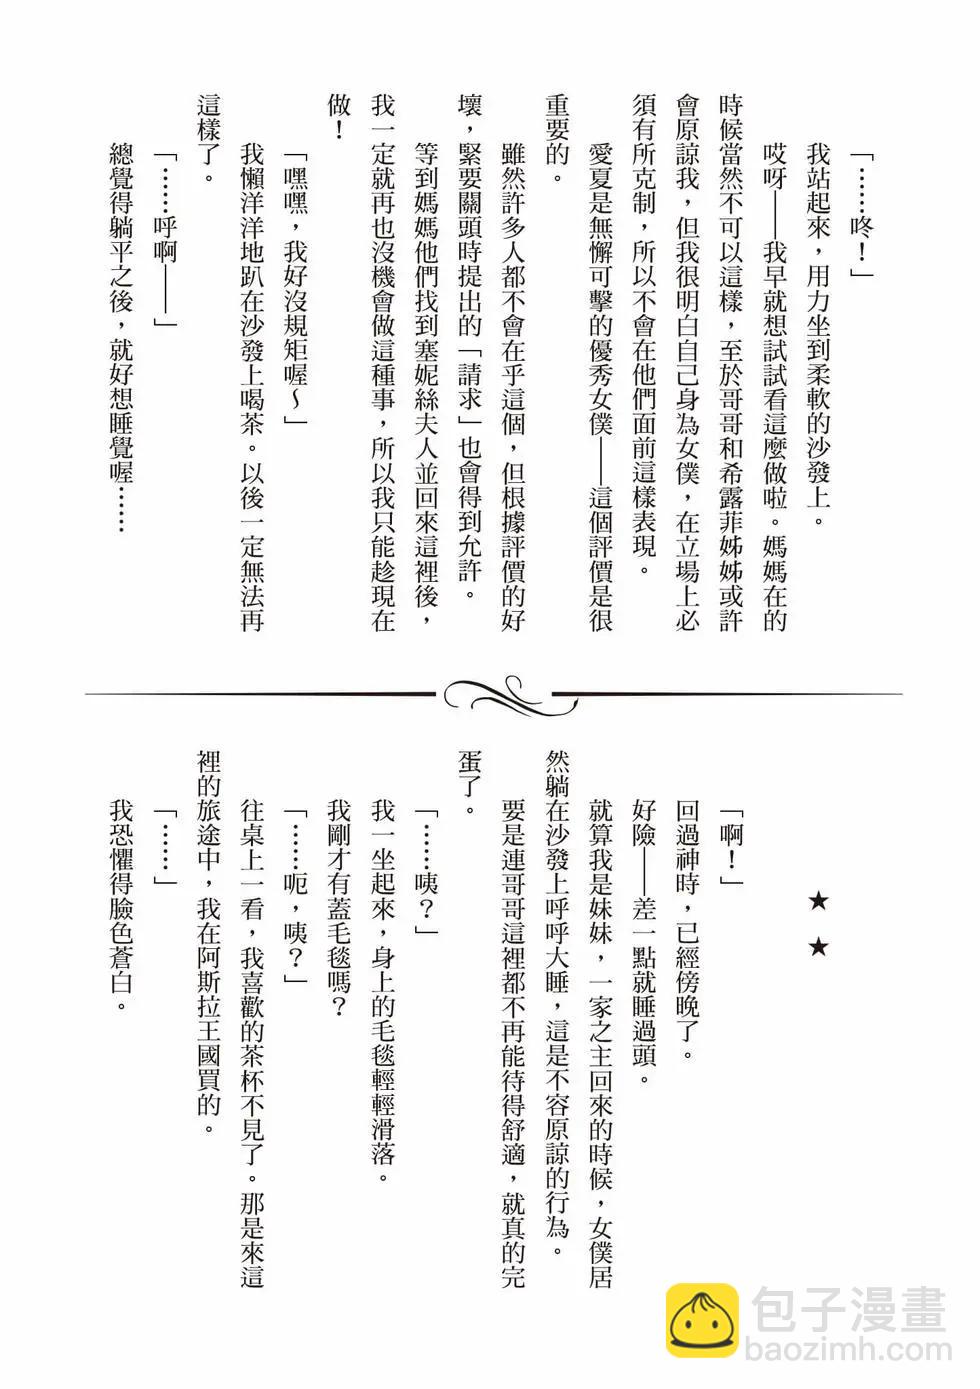 「……咚！」
我站起來，用力坐到柔軟的沙發上。
哎呀——我早就想試試看這麼做啦。媽媽在的
時候當然不可以這樣，至於哥哥和希露菲姊姊或許
會原諒我，但我很明白自己身為女僕，在立場上必
須有所克制，所以不會在他們面前這樣表現。
愛夏是無懈可擊的優秀女僕——這個評價是很
重要的。
雖然許多人都不會在乎這個，但根據評價的好
壞，緊要關頭時提出的「請求」也會得到允許。
等到媽媽他們找到塞妮絲夫人並回來這裡後，
我一定就再也沒機會做這種事，所以我只能趁現在
做！
「嘿嘿，我好沒規矩喔～」
我懶洋洋地趴在沙發上喝茶。以後一定無法再
這樣了。
「……呼啊——」
總覺得躺平之後，就好想睡覺喔……
★　★
「啊！」
回過神時，已經傍晚了。
好險——差一點就睡過頭。
就算我是妹妹，一家之主回來的時候，女僕居
然躺在沙發上呼呼大睡，這是不容原諒的行為。
要是連哥哥這裡都不再能待得舒適，就真的完
蛋了。
「……咦？」
我一坐起來，身上的毛毯輕輕滑落。
我剛才有蓋毛毯嗎？
「……呃，咦？」
往桌上一看，我喜歡的茶杯不見了。那是來這
裡的旅途中，我在阿斯拉王國買的。
「……」
我恐懼得臉色蒼白。
包子漫畫
baozimh.com